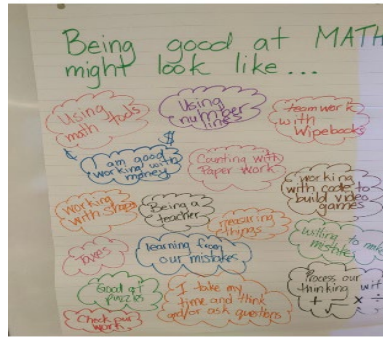 Being good at MATH
might look like...
Using
math tools
Using
number
lines
teamwork
with
Wipebooks
$
I am good
working with
money
Counting with
Paper Work
working
with code to
build video
games
working
with shapes
Being a
teacher
measuring
things
willing to make
mistakes
Taxes
learning from
our mistakes
Good at
puzzles
I take my
time and think
and/or ask questions
Process our
thinking wit
+ - × ÷
√
Check our
work